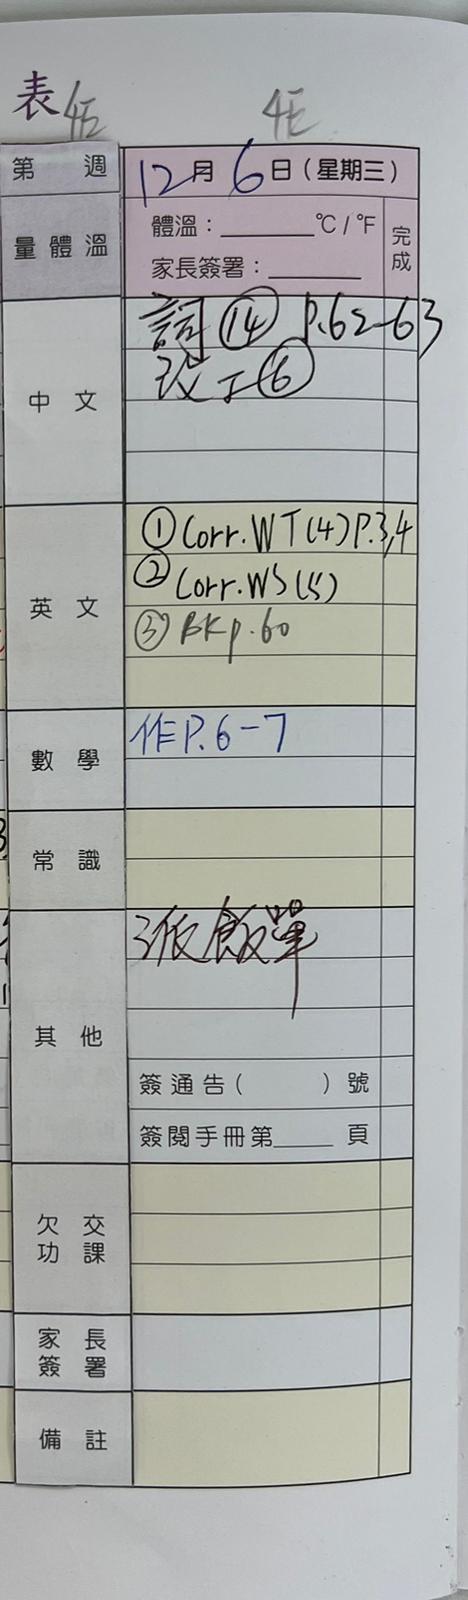 表
第 週 12月6日（星期三）
量體溫 體溫：______°C / °F
家長簽署：______
完成
中文 詞⑭ P.62-63
改丁⑥
英文 ① Corr. WT(4) P.3,4
② Corr. WS(5)
③ BK p.60
數學 作P.6-7
常識
其他 派飯單
簽通告（ ）號
簽閱手冊第____頁
欠交功課
家長簽署
備註